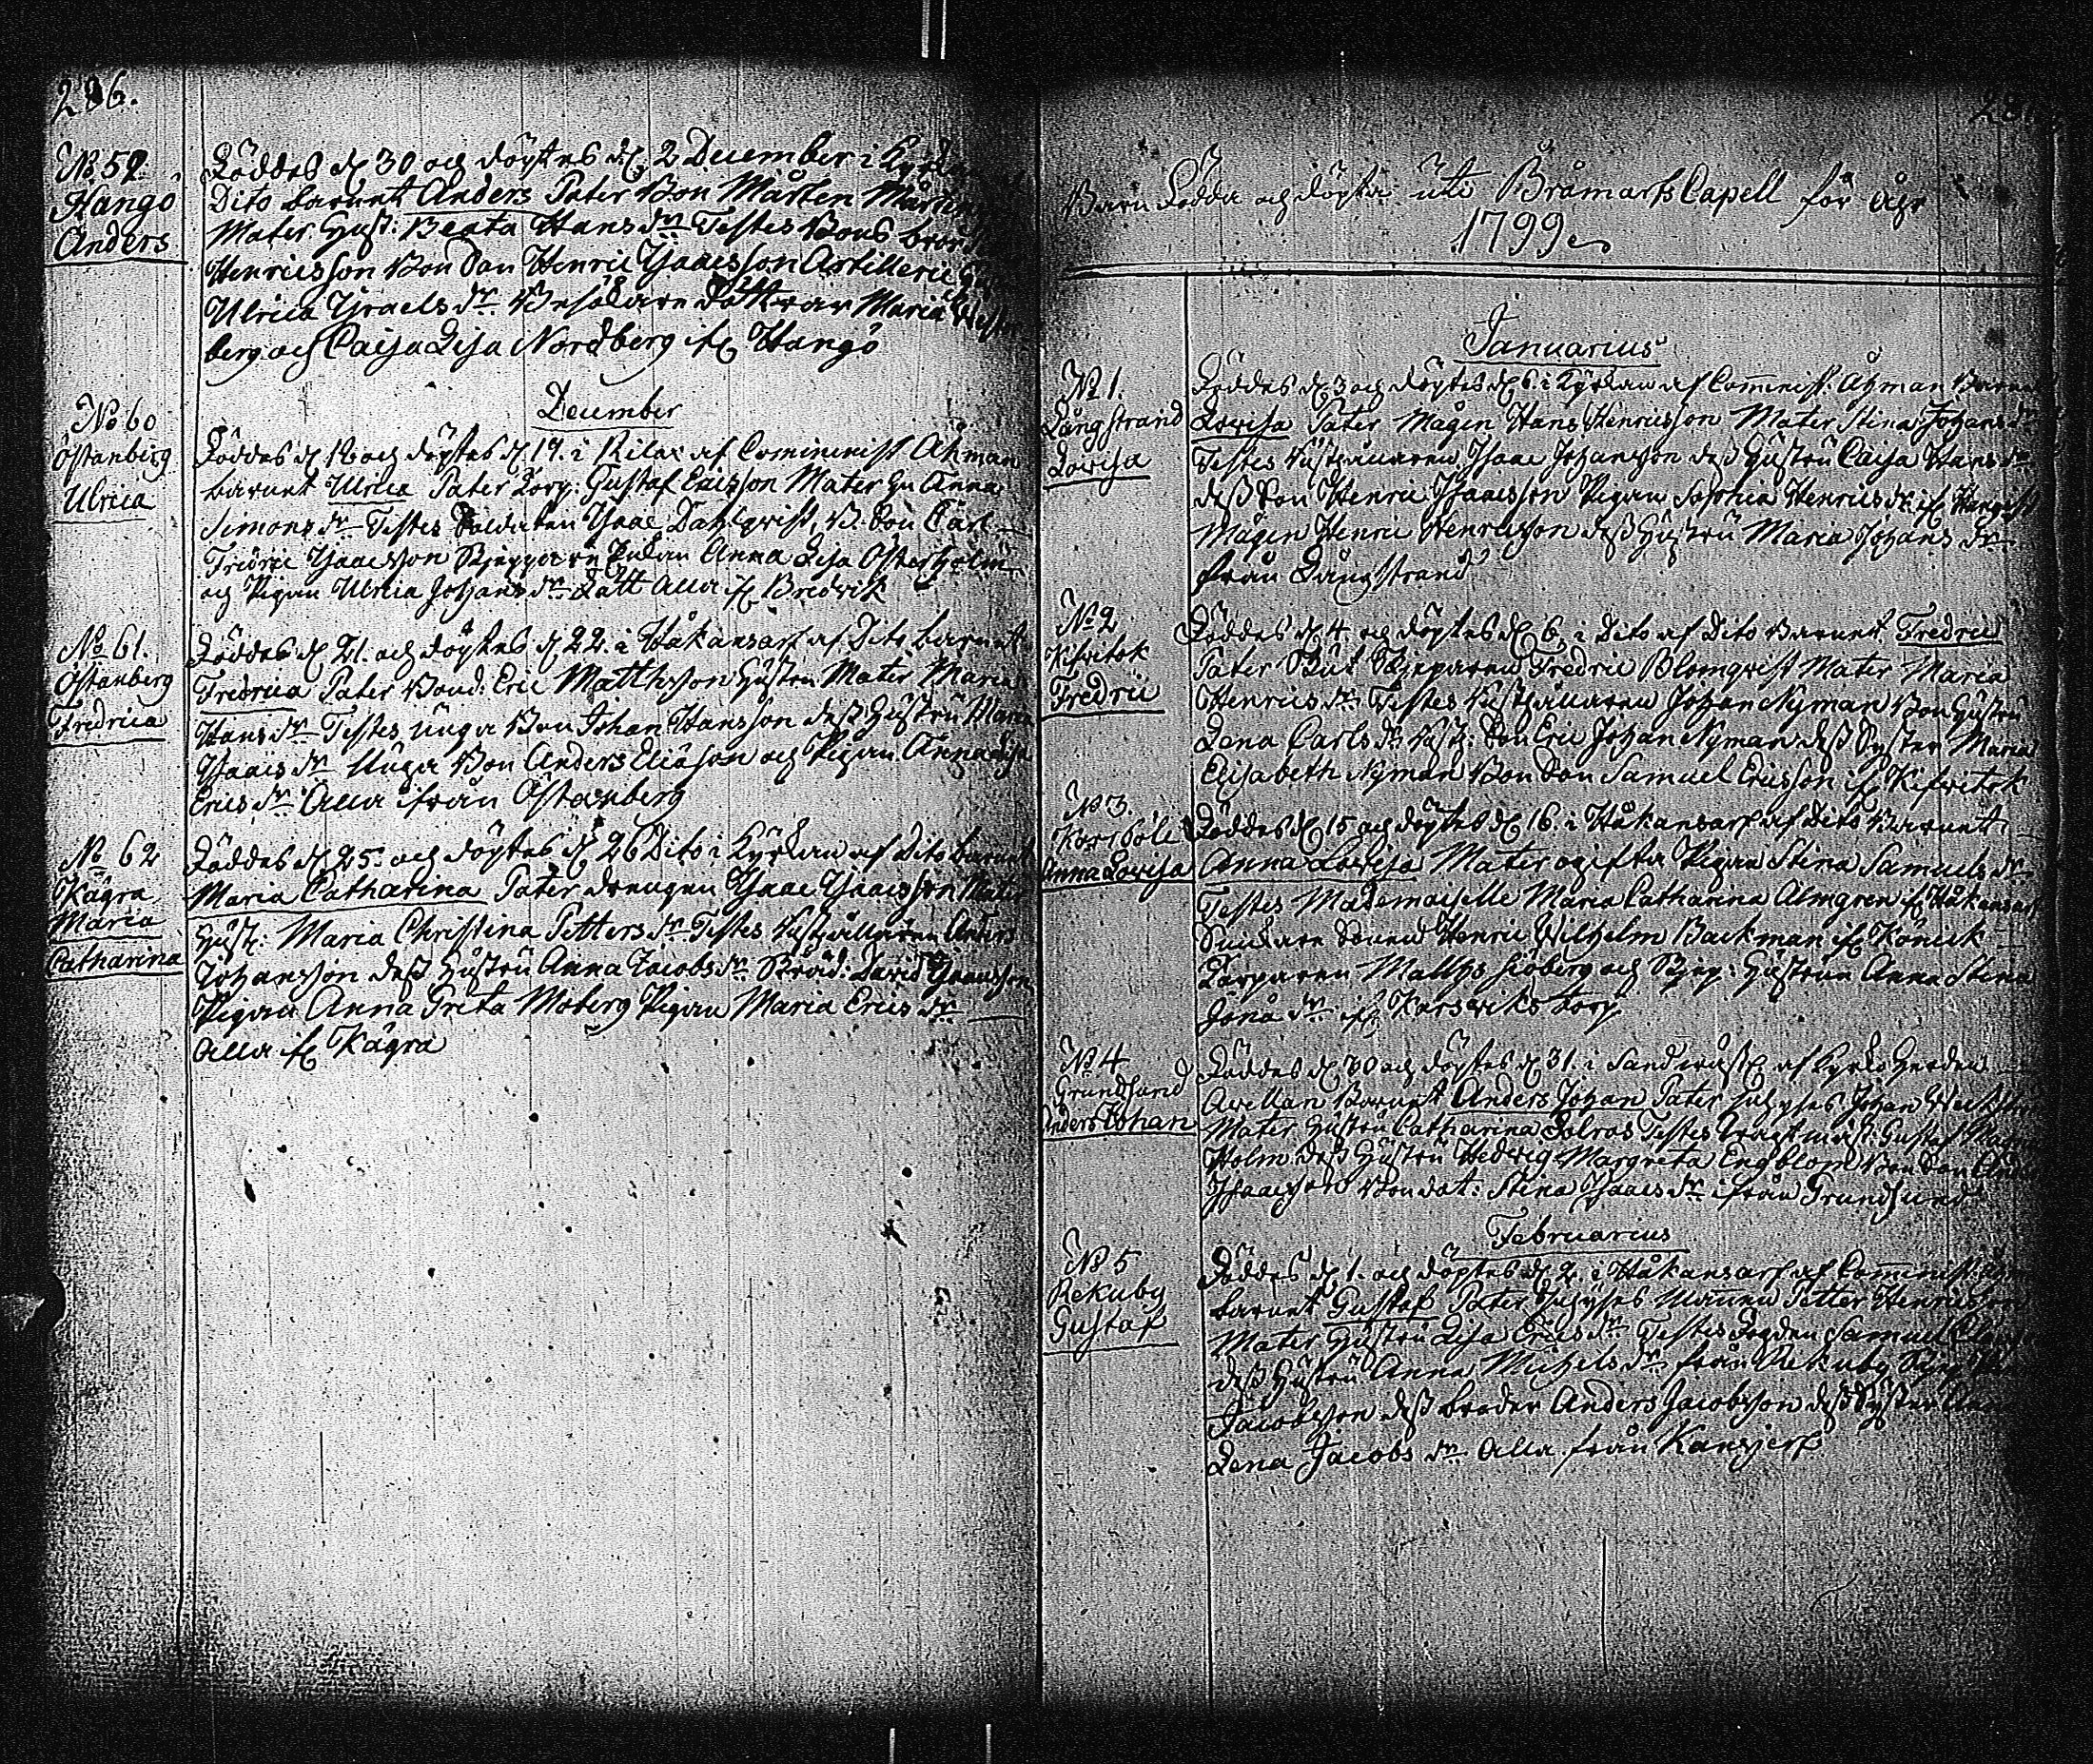 286.
No 59.
Hangö
Anders
Föddes d. 30 och döptes d. 2 December i Kyrkan
Dito barnet Anders Pater Bon Mårten Mårtens
Mater Hust: Beata Hans dr Testes Bons bror
Henricsson Bon Son Henric Isaacsson Artillerie
Ulrica Israels dr Döttrar Maria
berg och Caisa Lisa Nordberg if. Hangö
December
No 60
Östanberg
Ulrica
Föddes d. 18 och döptes d. 19. i Rilax af Comminist Åhman
barnet Ulrica Pater Torp: Gustaf Ericsson Mater Hu Anna
Simons dr Testes Soldaten Isaac Dahlqvist, B. Son Carl
Fridric Isaacsson Skeppare Enkan Anna Lisa Österholm
och Pigan Ulrica Johans dr Dått Alla if. Bredvik
No 61.
Östanberg
Fredrica
Föddes d. 21. och döptes d. 22. i Håkansarf af Dito barnet
Fredrica Pater Bond: Eric Matthsson Hustru Mater Maria
Hans dr Testes unga Bon Johan Hansson dess Hustru Maria
Isaacs dr Unga Bon Anders Eliasson och Pigan Anna Lisa
Erics dr Alla ifrån Östanberg
No 62
Kågra
Maria
Catharina
Föddes d. 25. och döptes d. 26 Dito i Kyrkan af Dito barnet
Maria Catharina Pater drengen Isaac Isaacsson Mater
Hust: Maria Christina Petters dr Testes Rusthållaren Anders
Johansson dess Hustru Anna Jacobs dr Skräd: David Isaacsson
Pigan Anna Greta Moberg Pigan Maria Erics dr
Alla if. Kågra
Barn Födde och döpte uti Bråmarfs Capell för åhr
1799
Januarius
No 1.
Långstrand
Lovisa
Föddes d. 3 och döptes d. 6. i Kyrkan af Comminist. Åhman Barnet
Lovisa Pater Mågen Hans Henricsson Mater Stina Johans dr
Testes Rusthållaren Isaac Johansson dess Hustru Caisa Hans dr
dess Son Henric Isaacsson Pigan Sophia Henrics dr if.
Mågen Henric Henricsson dess Hustru Maria Johans dr
från Långstrand
No 2
Kifvitok
Fredric
Föddes d. 4. och döptes d. 6. i Dito af Dito Barnet Fredric
Pater Skepparen Fredric Blomqvist Mater Maria
Henrics dr Testes Rusthållaren Johan Nyman Bon Hustru
Lena Carls dr Rusth: Son Eric Johan Nyman dess Syster Maria
Elisabeth Nyman Bon Son Samuel Ericsson if. Kifvitok
No 3.
Korsböle
Anna Lovisa
Föddes d. 15 och döptes d. 16. i Håkansarf af Dito Barnet
Anna Lovisa Mater ogifta Pigan Stina Samuels dr
Testes Mademoiselle Maria Catharina Almgren if. Håkansarf
Sonen Henric Wilhelm Backman if. Könick
Torparen Matths Siöberg och Skep: Hustrun Anna Stina
Jöns dr if. Karsviks torp
No 4
Grundsund
Anders Johan
Föddes d. 30 och döptes d. 31. i Sandvass af Kyrko Herden
Avellan Barnet Anders Johan Pater Inhyses Johan
Mater Hustru Catharina Solros Testes Vagtmäst: Gustaf
Holm dess Hustru Hedvig Margreta Engblom Bon Son
Isaacsson Bon dot: Stina Isaacs dr ifrån Grundsund
Februarius
No 5
Rekuby
Gustaf
Föddes d. 1. och döptes d. 2. i Håkansarf af Comminist
barnet Gustaf Pater Inhyses Mannen Petter Henricsson
Mater Hustru Lisa Erics dr Testes Fogden Samuel
dess Hustru Anna Michels dr från Rekuby
Jacobsson dess broder Anders Jacobsson dess Syster
Lena Jacobs dr Alla från Kansjerf